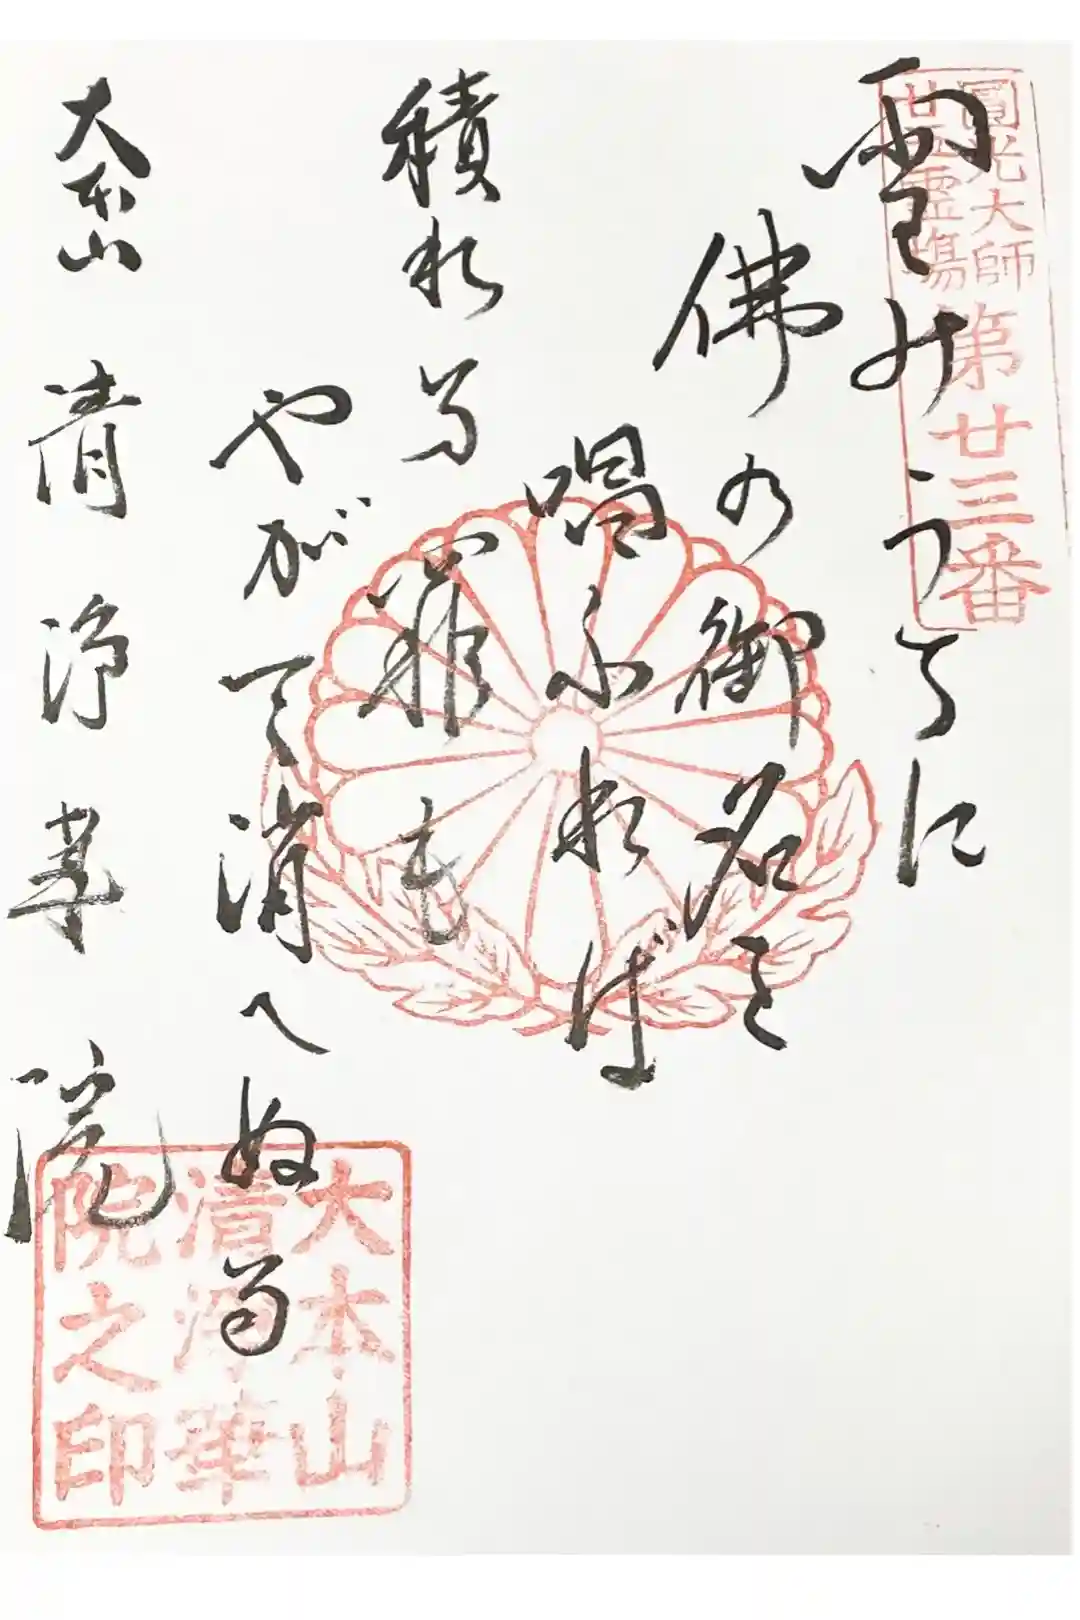 圓光大師
廿五霊場
第廿三番
雪のうちに
佛の御名を
唱ふれば
積れる
罪も
やがて消へぬる
大本山 清浄華院
大本山
清浄華
院之印